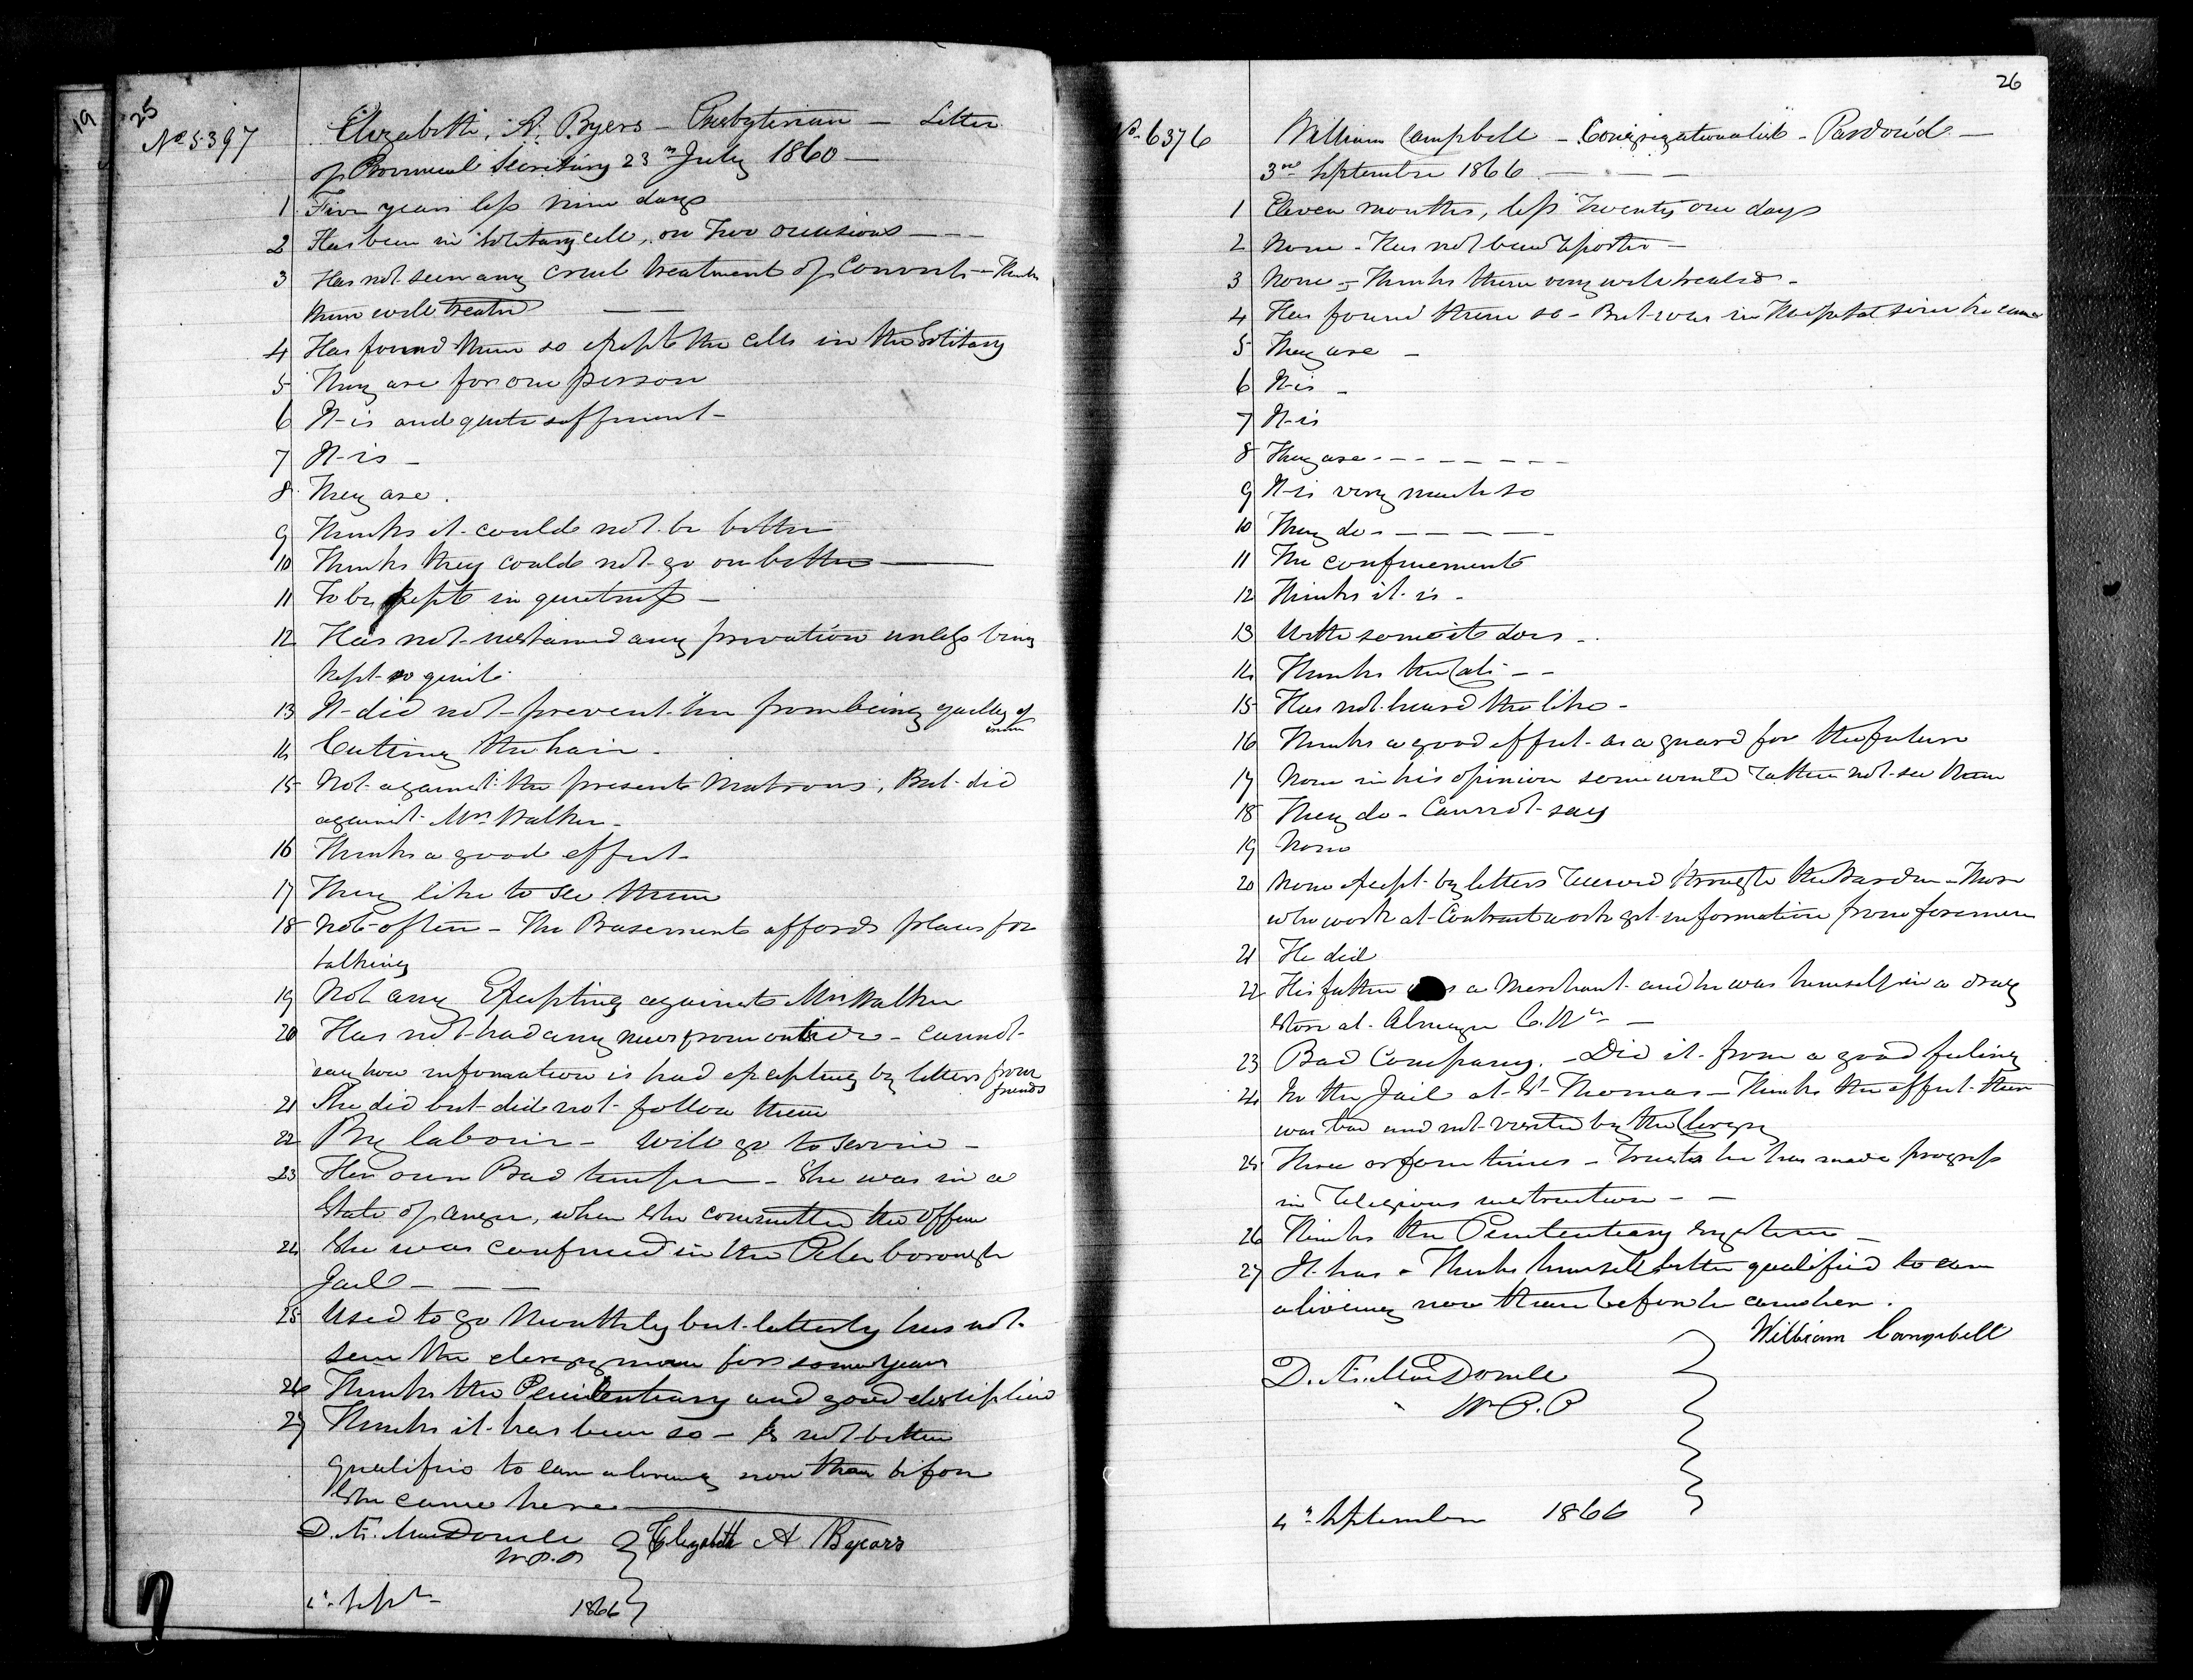 19
25
No 5397
Elizabeth A. Byers — Presbyterian — Letter
of Provincial Secretary 23rd July 1860 —
1 Five years less nine days
2 Has been in solitary cell, on two occasions — — —
3 Has not seen any cruel treatment of Convicts — Thinks
them well treated — —
4 Has found them so except the cells in the Solitary
5 They are for one person
6 It is and quite sufficient —
7 It is —
8 They are.
9 Thinks it could not be better
10 Thinks they could not go on better ———
11 To be kept in quietness —
12 Has not sustained any privation unless being
kept so quiet.
13 It did not prevent her from being guilty of
crime
14 Cutting the hair —
15 Not against the present Matrons, But did
against Mrs Walker —
16 Thinks a good effect —
17 They like to see them
18 Not often — The Basement affords places for
talking
19 Not any Excepting against Mrs Walker
20 Has not had any news from outside — cannot
say how information is had excepting by letters from
friends
21 She did but did not follow them
22 By labour — Will go to service —
23 Her own Bad temper — She was in a
State of anger, when she committed the offence
24 She was confined in the Peterborough
Jail — — —
25 Used to go Monthly but latterly has not
seen the clergyman for some years
26 Thinks the Penitentiary and good discipline
27 Thinks it has been so — Is not better
qualified to earn a living now than before
She came here ———
D. Æ. MacDonell
W.P.P
Elizabeth A Byears
1st Sept
1866
26
No. 6376
William Campbell — Congregationalist — Pardon'd —
3rd September 1866 — — — —
1 Eleven months, less Twenty one days
2 None — Has not been reported —
3 None — Thinks them very well treated —
4 Has found them so — But was in Hospital since he came
5 They are —
6 It is —
7 It is
8 They are — — — — — — —
9 It is very much so
10 They do — — — — — —
11 The confinement
12 Thinks it is —
13 With some it does —
14 Thinks the Cats — —
15 Has not heard the like —
16 Thinks a good effect as a guard for the future
17 None in his opinion some would rather not see them
18 They do — Cannot say
19 None
20 None except by letters received through the Warden — Those
who work at Contract work get information from foremen
21 He did
22 His father was a Merchant and he was himself in a drug
Store at C.W. —
23 Bad Company. — Did it from a good feeling
24 In the Jail at St Thomas — Thinks the effect there
was bad and not visited by the Clergy
25 Three or four times — Trusts he has made progress
in Religious instruction — —
26 Thinks the Penitentiary System —
27 It has — Thinks himself better qualified to earn
a living now than before he came here.
William Campbell
D. Æ. MacDonell
W.P.P
4th September 1866